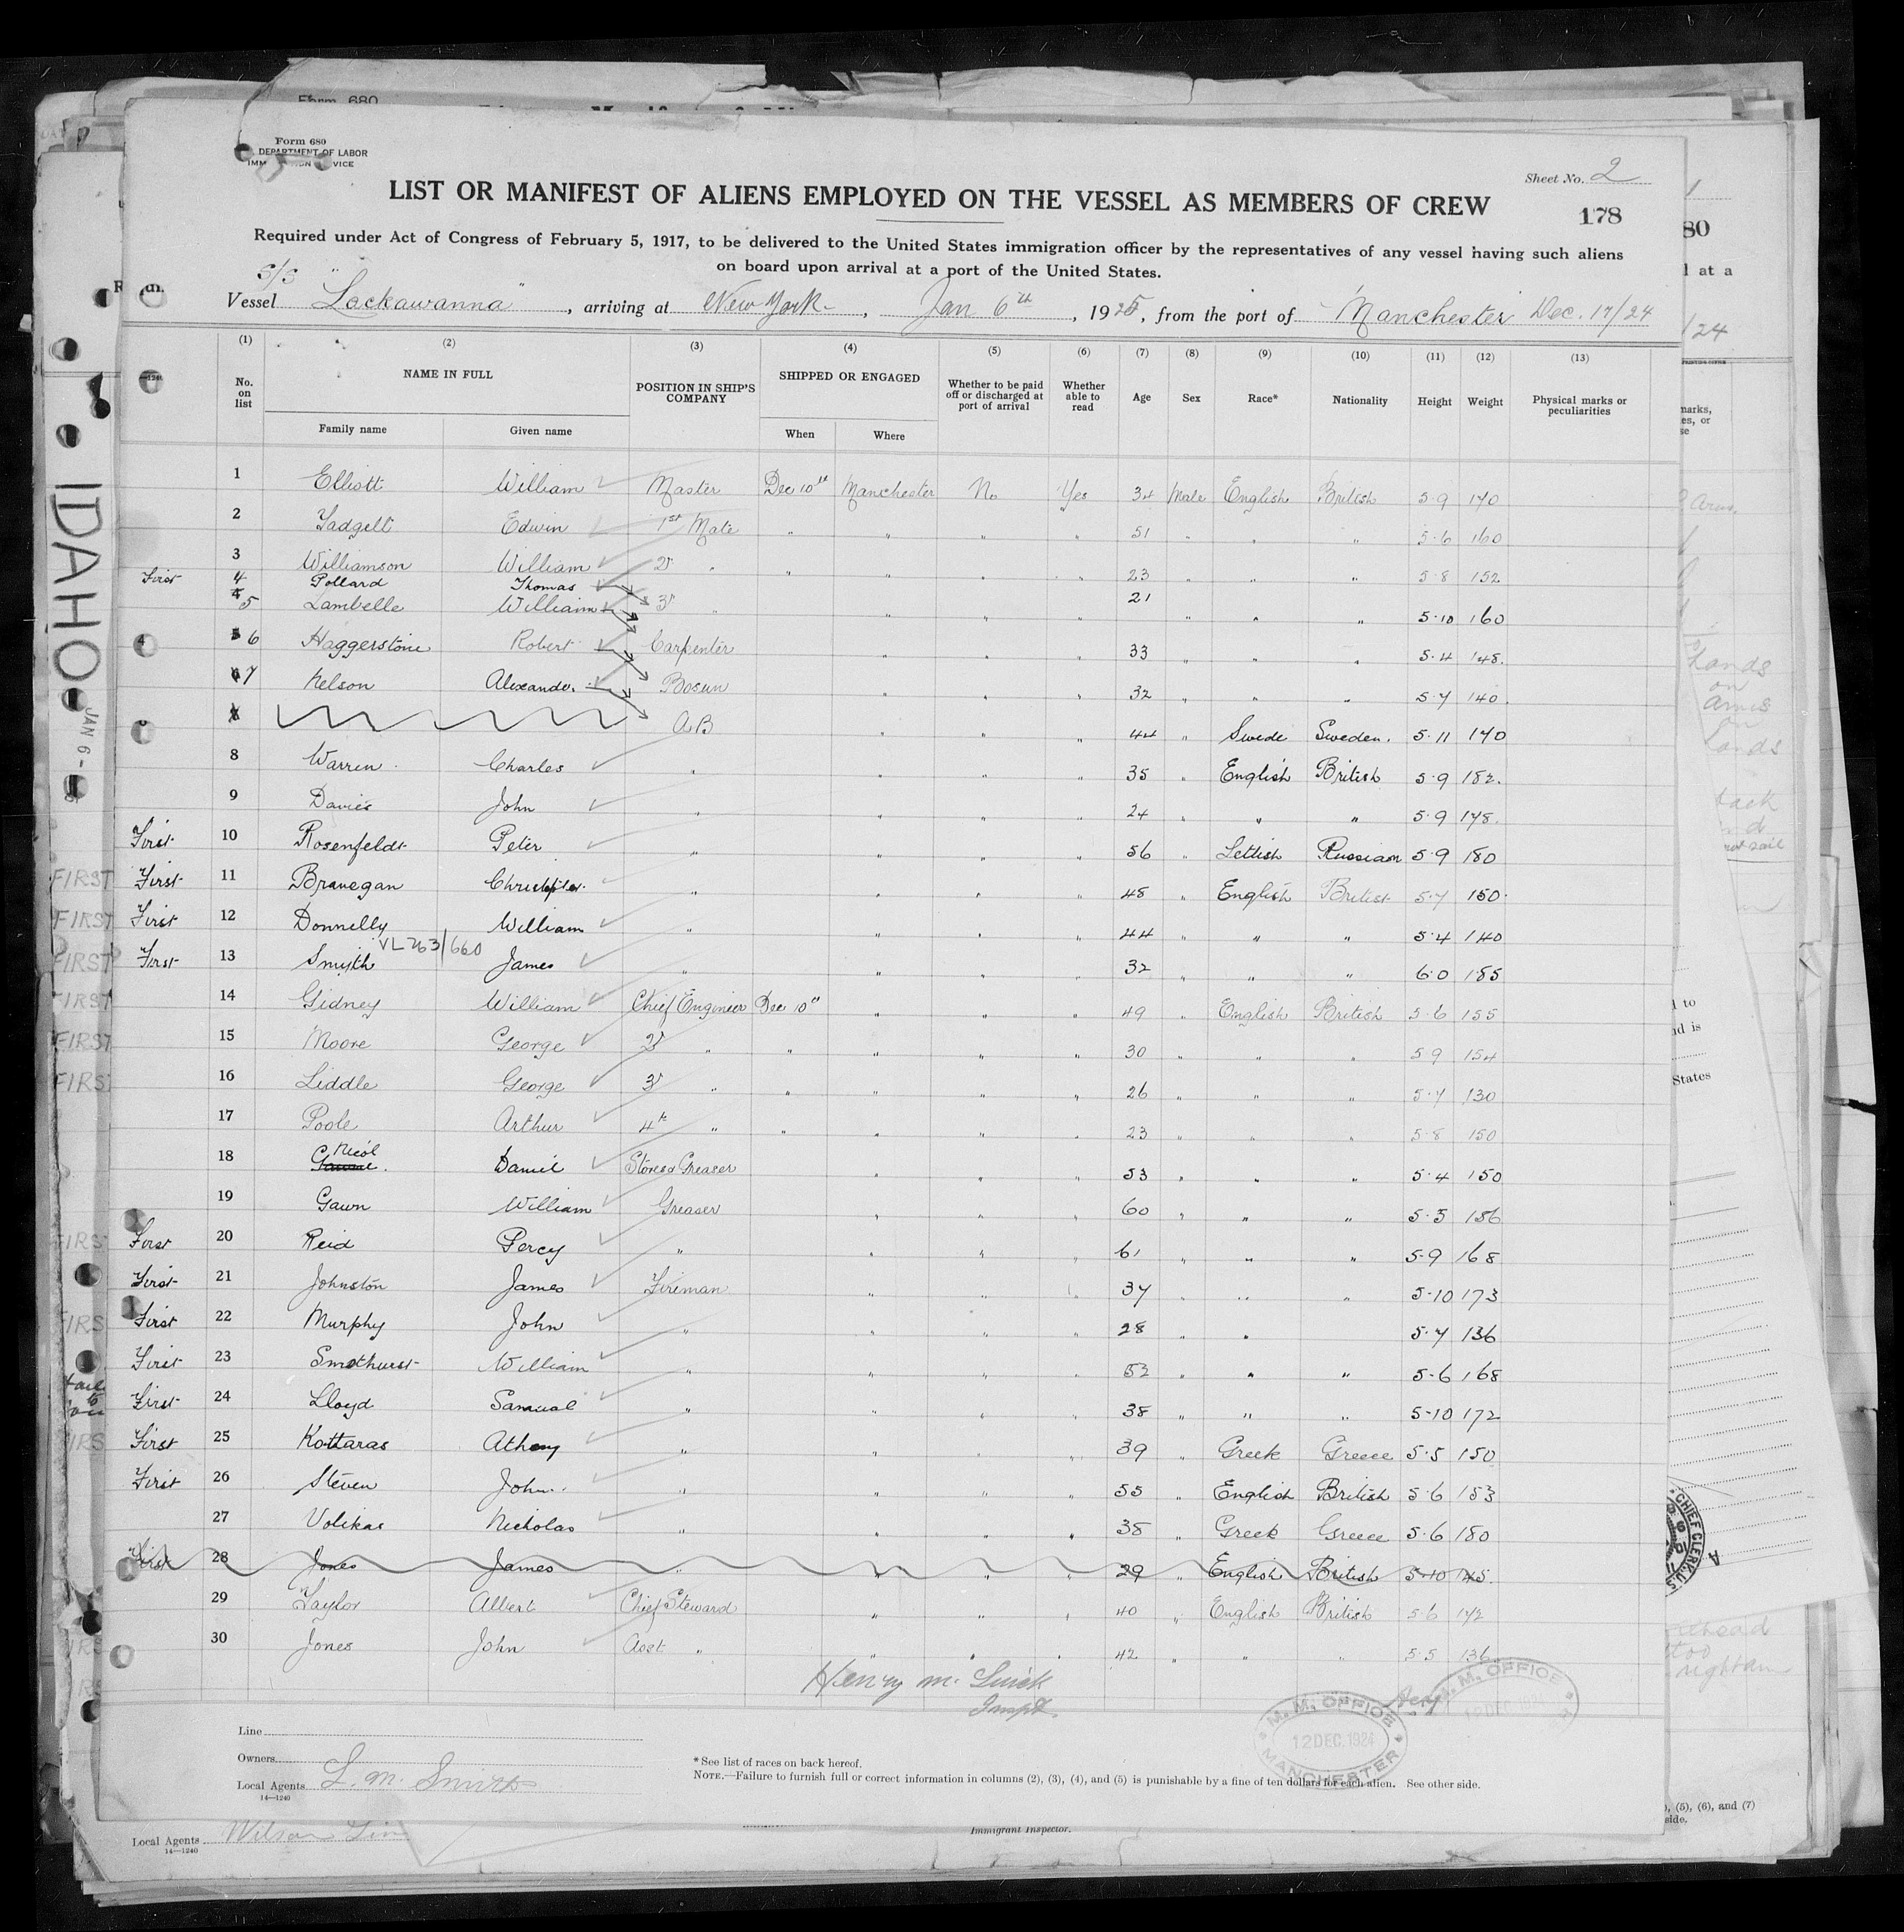 Form 680
Form 680
DEPARTMENT OF LABOR
Sheet No. 2
LIST OR MANIFEST OF ALIENS EMPLOYED ON THE VESSEL AS MEMBERS OF CREW
178
Required under Act of Congress of February 5, 1917, to be delivered to the United States immigration officer by the representatives of any vessel having such aliens
on board upon arrival at a port of the United States.
S/S
Vessel "Lackawanna", arriving at New York, Jan 6th, 1925, from the port of Manchester Dec. 17/24
(1) (2) (3) (4) (5) (6) (7) (8) (9) (10) (11) (12) (13)
No. on list NAME IN FULL POSITION IN SHIP'S COMPANY SHIPPED OR ENGAGED Whether to be paid off or discharged at port of arrival Whether able to read Age Sex Race* Nationality Height Weight Physical marks or peculiarities
Family name Given name When Where
1 Elliott William Master Dec 10th Manchester No Yes 34 Male English British 5·9 170
2 Yadgell Edwin 1st Mate " " " " 51 " " " 5·6 160
3 Williamson William 2d " " " " " 23 " " " 5·8 152
First 4 Pollard Thomas 21
4 5 Lambelle William 3d " " " " " " " 5·10 160
5 6 Haggerstone Robert Carpenter " " " 33 " " " 5·4 148.
6 7 Nelson Alexander Bosun " " " 32 " " " 5·7 140.
AB " " " 44 " Swede Sweden. 5·11 170
8 Warren Charles " " " " 35 " English British 5·9 182.
9 Davies John " " " " 24 " " " 5·9 178.
First 10 Rosenfeldt Peter " " " " 56 " Lettish Russian 5·9 180
FIRST First 11 Branegan Christopher " " " " 48 " English British 5·7 150
FIRST First 12 Donnelly William " " " " 44 " " " 5·4 140
VL 263/660
FIRST First 13 Smyth James " " " " 32 " " " 6·0 185
FIRST 14 Gidney William Chief Engineer Dec 10th " " " 49 " English British 5·6 155
FIRST 15 Moore George 2d " " " " " 30 " " " 5·9 154
FIRST 16 Liddle George 3d " " " " " 26 " " " 5·7 130
17 Poole Arthur 4th " " " " " 23 " " " 5·8 150
18 Nicol Daniel Stores Greaser " " " 53 " " " 5·4 150
19 Gawn William Greaser " " " 60 " " " 5·5 156
First 20 Reid Percy " " " " 61 " " " 5·9 168
First 21 Johnston James Fireman " " " 37 " " " 5·10 173
First 22 Murphy John " " " " 28 " " 5·7 136
First 23 Smethurst William " " " " 52 " " " 5·6 168
First 24 Lloyd Samual " " " " 38 " " " 5·10 172
First 25 Kottaras Athony " " " " 39 " Greek Greece 5·5 150
First 26 Steven John " " " " 55 " English British 5·6 153
27 Volikas Nicholas " " " " 38 " Greek Greece 5·6 180
First 28 Jones James " " " " 29 " English British 5·10 145.
29 Taylor Albert Chief Steward " " " 40 " English British 5·6 142
30 Jones John Asst " " " " 42 " " " 5·5 136
Line
Owners
Local Agents
14—1240
*See list of races on back hereof.
NOTE.—Failure to furnish full or correct information in columns (2), (3), (4), and (5) is punishable by a fine of ten dollars for each alien. See other side.
M. M. OFFICE
12 DEC. 1924
MANCHESTER
M. M. OFFICE
Local Agents
14—1240
Immigrant Inspector.
IDAHO
JAN 6 -